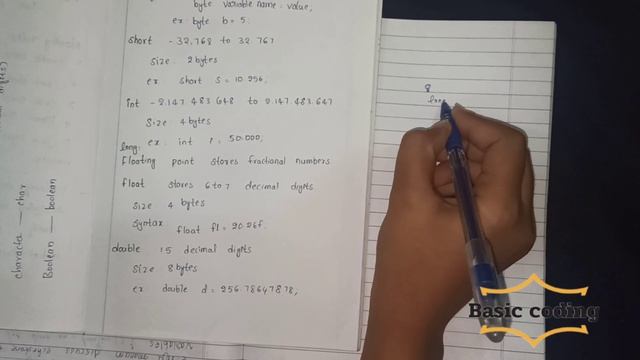 byte variable name = value;
ex: byte b = 5;
short -32,768 to 32 767
size 2 bytes
ex short s = 10 256,
int -2.147.483 648 to 2.147.483.647
size 4 bytes
long: ex: int i = 50.000;
floating point stores fractional numbers
float stores 6 to 7 decimal digits
size 4 bytes
syntax float f1 = 20.26f.
double 15 decimal digits
size 8 bytes
ex double d = 256.78647878,
character — char
Boolean — boolean
digits)
8
long
Basic coding